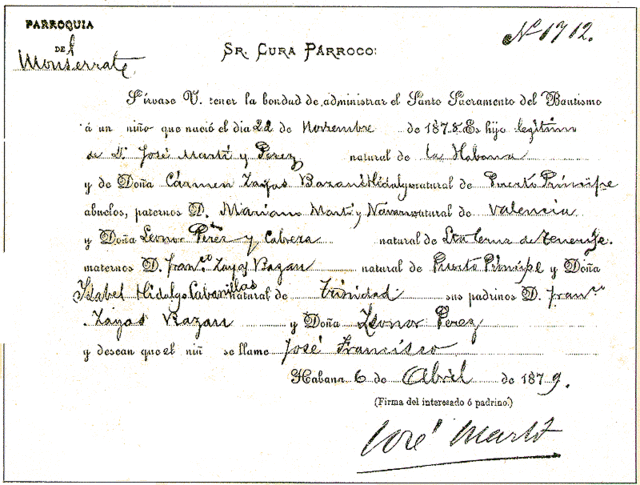 PARROQUIA
DEL
Monserrate
Nº 1712.
SR. CURA PÁRROCO:
Sírvase V. tener la bondad de administrar el Santo Sacramento del Bautismo
á un niño que nació el dia 22 de Noviembre de 1878. Es hijo legítimo
de D. José Martí y Perez natural de la Habana
y de Doña Cármen Zayas Bazan é Hidalgo natural de Puerto Príncipe
abuelos, paternos D. Mariano Martí y Navarro natural de Valencia
y Doña Leonor Pérez y Cabrera natural de Sta Cruz de Tenerife.
maternos D. Franco Zayas Bazan natural de Puerto Príncipe y Doña
Isabel Hidalgo Cabanillas natural de Trinidad sus padrinos D. Franco
Zayas Bazan y Doña Leonor Perez
y desean que el niñ se llame José Francisco
Habana 6 de Abril de 1879.
(Firma del interesado ó padrino.)
José Martí